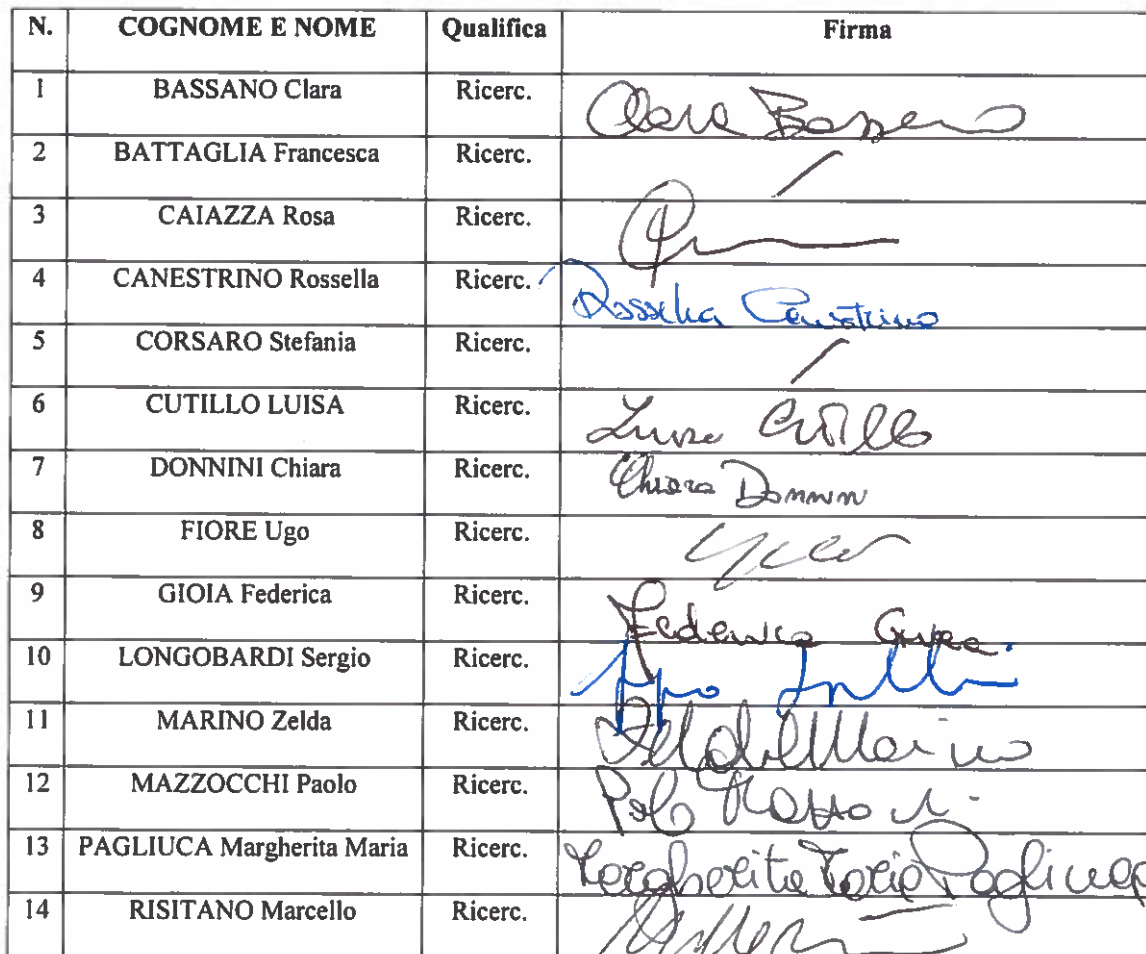 N. COGNOME E NOME Qualifica Firma
1 BASSANO Clara Ricerc. Clara Bassano
2 BATTAGLIA Francesca Ricerc. /
3 CAIAZZA Rosa Ricerc.
4 CANESTRINO Rossella Ricerc. Rossella Canestrino
5 CORSARO Stefania Ricerc. /
6 CUTILLO LUISA Ricerc. Luisa Cutillo
7 DONNINI Chiara Ricerc. Chiara Donnini
8 FIORE Ugo Ricerc.
9 GIOIA Federica Ricerc. Federica Gioia
10 LONGOBARDI Sergio Ricerc.
11 MARINO Zelda Ricerc. Zelda Marino
12 MAZZOCCHI Paolo Ricerc. Paolo Mazzocchi
13 PAGLIUCA Margherita Maria Ricerc. Margherita Maria Pagliuca
14 RISITANO Marcello Ricerc.